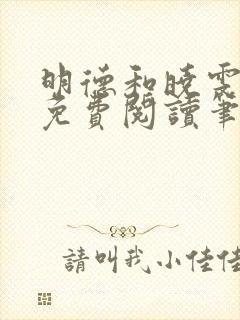 明德和曉雲
免費閱讀筆
請叫我小佳佳